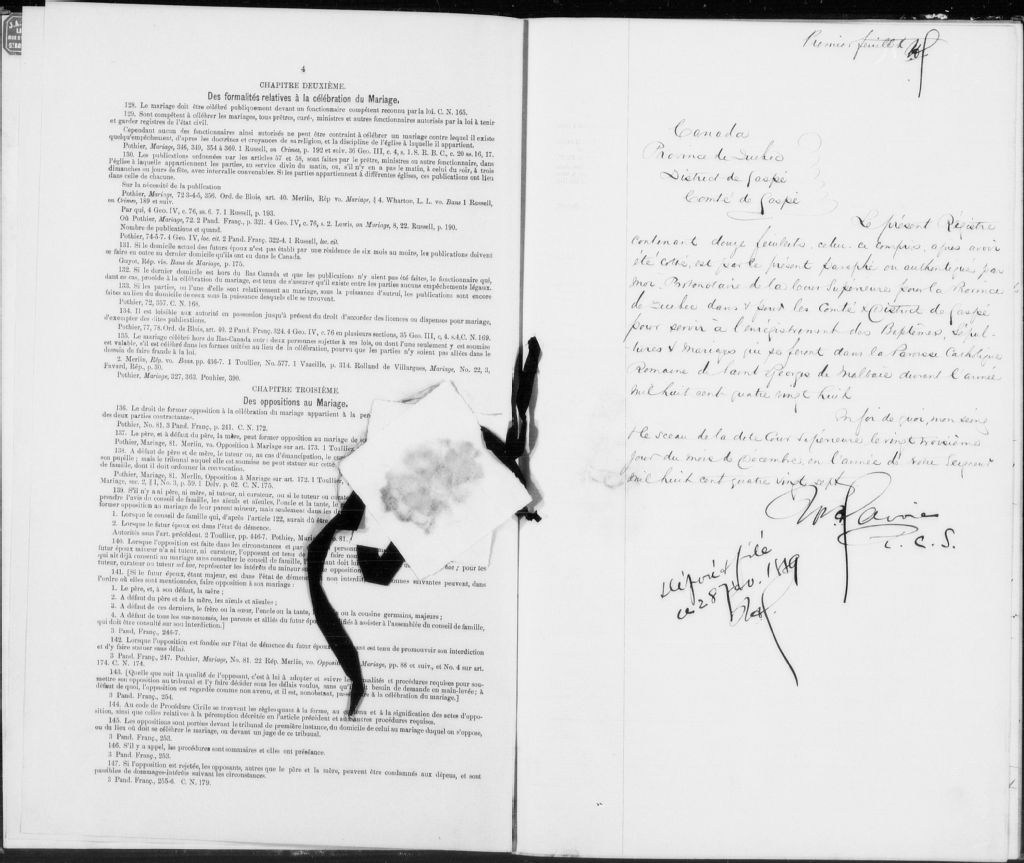 4
CHAPITRE DEUXIÈME.
Des formalités relatives à la célébration du Mariage.
128. Le mariage doit être célébré publiquement devant un fonctionnaire compétent reconnu par la loi. C. N. 165.
129. Sont compétents à célébrer les mariages, tous prêtres, curé, ministres et autres fonctionnaires autorisés par la loi à tenir
et garder registres de l'état civil.
Cependant aucun des fonctionnaires ainsi autorisés ne peut être contraint à célébrer un mariage contre lequel il existe
quelqu'empêchement, d'après les doctrines et croyances de sa religion, et la discipline de l'église à laquelle il appartient.
Pothier, Mariage, 346, 349, 354 à 360. 1 Russell, on Crimes, p. 192 et suiv. 36 Geo. III, c. 4, s. 1. S. R. B. C., c. 20 ss. 16, 17.
130. Les publications ordonnées par les articles 57 et 58, sont faites par le prêtre, ministre ou autre fonctionnaire, dans
l'église à laquelle appartiennent les parties, au service divin du matin, ou, s'il n'y en a pas le matin, à celui du soir, à trois
dimanches ou jours de fête, avec intervalle convenables. Si les parties appartiennent à différentes églises, ces publications ont lieu
dans celle de chacune.
Sur la nécessité de la publication
Pothier, Mariage, 72 3-4-5, 356. Ord. de Blois, art. 40. Merlin, Rép vo. Mariage, § 4. Wharton, L. L. vo. Bans 1 Russell,
on Crimes, 189 et suiv.
Par qui, 4 Geo. IV, c. 76, ss. 6. 7. 1 Russell, p. 193.
Où Pothier, Mariage, 72. 2 Pand. Franç., p. 321. 4 Geo. IV, c. 76, s. 2. Lewis, on Mariage, 8, 22. Russell, p. 190.
Nombre de publications et quand.
Pothier, 74-5-7. 4 Geo. IV, loc. cit. 2 Pand. Franç. 322-4. 1 Russell, loc. cit.
131. Si le domicile actuel des futurs époux n'est pas établi par une résidence de six mois au moins, les publications doivent
se faire en outre au dernier domicile qu'ils ont eu dans le Canada.
Guyot, Rép. vis. Bans de Mariage, p. 175.
132. Si le dernier domicile est hors du Bas Canada et que les publications n'y aient pas été faites, le fonctionnaire qui,
dans ce cas, procède à la célébration du mariage, est tenu de s'assurer qu'il existe entre les parties aucuns empêchements légaux.
133. Si les parties, ou l'une d'elle sont relativement au mariage, sous la puissance d'autrui, les publications sont encore
faites au lieu du domicile de ceux sous la puissance desquels elle se trouvent.
Pothier, 72, 357. C. N. 168.
134. Il est loisible aux autorité en possession jusqu'à présent du droit d'accorder des licences ou dispenses pour mariage,
d'exempter des dites publications.
Pothier, 77, 78. Ord. de Blois, art. 40. 2 Pand. Franç. 324. 4 Geo. IV, c. 76 en plusieurs sections, 35 Geo. III, c. 4. s.4. C. N. 169.
135. Le mariage célébré hors du Bas-Canada entre deux personnes sujettes à ses lois, ou dont l'une seulement y est soumise
est valable, s'il est célébré dans les formes usitées au lieu de la célébration, pourvu que les parties n'y soient pas allées dans le
dessein de faire fraude à la loi.
2. Merlin, Rép. vo. Bans pp. 456-7. 1 Toullier, No. 577. 1 Vazeille, p. 314. Rolland de Villargues, Mariage, No. 22, 3,
Favard, Rép., p. 30.
Pothier, Mariage, 327, 363. Pouhler, 390.
CHAPITRE TROISIÈME.
Des oppositions au Mariage.
136. Le droit de former opposition à la célébration du mariage appartient à la
des deux parties contractantes.
Pothier, No. 81. 3 Pand. Franç., p. 241. C. N. 172.
137. Le père, et à défaut du père, la mère, peut former opposition au mariage de
Pothier, Mariage, 81. Merlin, vo. Opposition à Mariage sur art. 173. 1 Toullier,
138. A défaut de père et de mère, le tuteur ou, au cas d'émancipation, le
son pupille; mais le tribunal auquel elle est soumise ne peut statuer sur cette
de famille, dont il doit ordonner la convocation.
Pothier, Mariage, 81. Merlin, Opposition à Mariage sur art. 172. 1 Toullier,
Mariage, sec. 2, § 1, No. 3, p. 59. 1 Delv. p. 62. C. N. 175.
139. S'il n'y a ni père, ni mère, ni tuteur, ni curateur, ou si le tuteur ou
prendre l'avis du conseil de famille, les aïeuls et aïeules, l'oncle et la tante,
former opposition au mariage de leur parent mineur, mais seulement dans les
1. Lorsque le conseil de famille qui, d'après l'article 122, aurait dû être
2. Lorsque le futur époux est dans l'état de démence.
Autorités sous l'art. précédent. 2 Toullier, pp. 446-7. Pothier, 81.
140. Lorsque l'opposition est faite dans les circonstances et par
futur époux mineur n'a ni tuteur, ni curateur, l'opposant est tenu de
qui ait déjà consenti au mariage sans consulter le conseil de famille,
tuteur, curateur ou tuteur ad hoc, représenter les intérêts du mineur opposition
141. [Si le futur époux, étant majeur, est dans l'état de démence non interdit suivantes peuvent, dans
l'ordre où elles sont mentionnées, faire opposition à son mariage :
1. Le père, et, à son défaut, la mère;
2. A défaut du père et de la mère, les aïeuls et aïeules;
3. A défaut de ces derniers, le frère ou la sœur, l'oncle ou la tante, ou la cousine germains, majeurs;
4. A défaut de tous les sus-nommés, les parents et alliés du futur à assister à l'assemblée du conseil de famille,
qui doit être consulté sur son interdiction.]
3 Pand. Franç., 246-7.
142. Lorsque l'opposition est fondée sur l'état de démence du futur est tenu de promouvoir son interdiction
et d'y faire statuer sans délai.
3 Pand. Franç., 247. Pothier, Mariage, No. 81. 22 Rép. Merlin, vo. Mariage, pp. 88 et suiv., et No. 4 sur art.
174. C. N. 174.
143. [Quelle que soit la qualité de l'opposant, c'est à lui à adopter et suivre les formalités et procédures requises pour sou-
mettre son opposition au tribunal et l'y faire décider sous les délais voulus, sans qu'il soit besoin de demande en main-levée; à
défaut de quoi, l'opposition est regardée comme non avenue, et il est, nonobstant, à la célébration du mariage.]
3 Pand. Franç., 254.
144. Au code de Procédure Civile se trouvent les règles quant à la forme, au contenu et à la signification des actes d'oppo-
sition, ainsi que celles relatives à la péremption décrétée en l'article précédent et aux autres procédures requises.
145. Les oppositions sont portées devant le tribunal de première instance, du domicile de celui au mariage duquel on s'oppose,
ou du lieu où doit se célébrer le mariage, ou devant un juge de ce tribunal.
3 Pand. Franç., 253.
146. S'il y a appel, les procédures sont sommaires et elles ont préséance.
3 Pand. Franç., 253.
147. Si l'opposition est rejetée, les opposants, autres que le père et la mère, peuvent être condamnés aux dépens, et sont
passibles de dommages-intérêts suivant les circonstances.
3 Pand. Franç., 255-6. C. N. 179.
Premier feuillet
Canada
Province de Québec
District de Gaspé
Comté de Gaspé
Le présent Registre
contenant douze feuillets, celui-ci compris, après avoir
été coté, est par le présent paraphé ou authentiqué par
moi, Protonotaire de la Cour Supérieure pour la Province
de Québec dans & pour les Comté & District de Gaspé
pour servir à l'enregistrement des Baptêmes, Sépul-
tures & Mariages qui se feront dans la Paroisse Catholique
Romaine de Saint Georges de Malbaie durant l'année
mil huit cent quatre vingt huit
En foi de quoi, mon sein
& le sceau de la dite Cour Supérieure le vingt troisième
jour du mois de Décembre en l'année de Notre Seigneur
mil huit cent quatre vingt sept
P. C. S.
Déposé & filé
ce 28 Janv. 1889